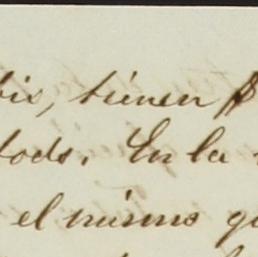 bis, tienen
tods. En la
el mismo qu